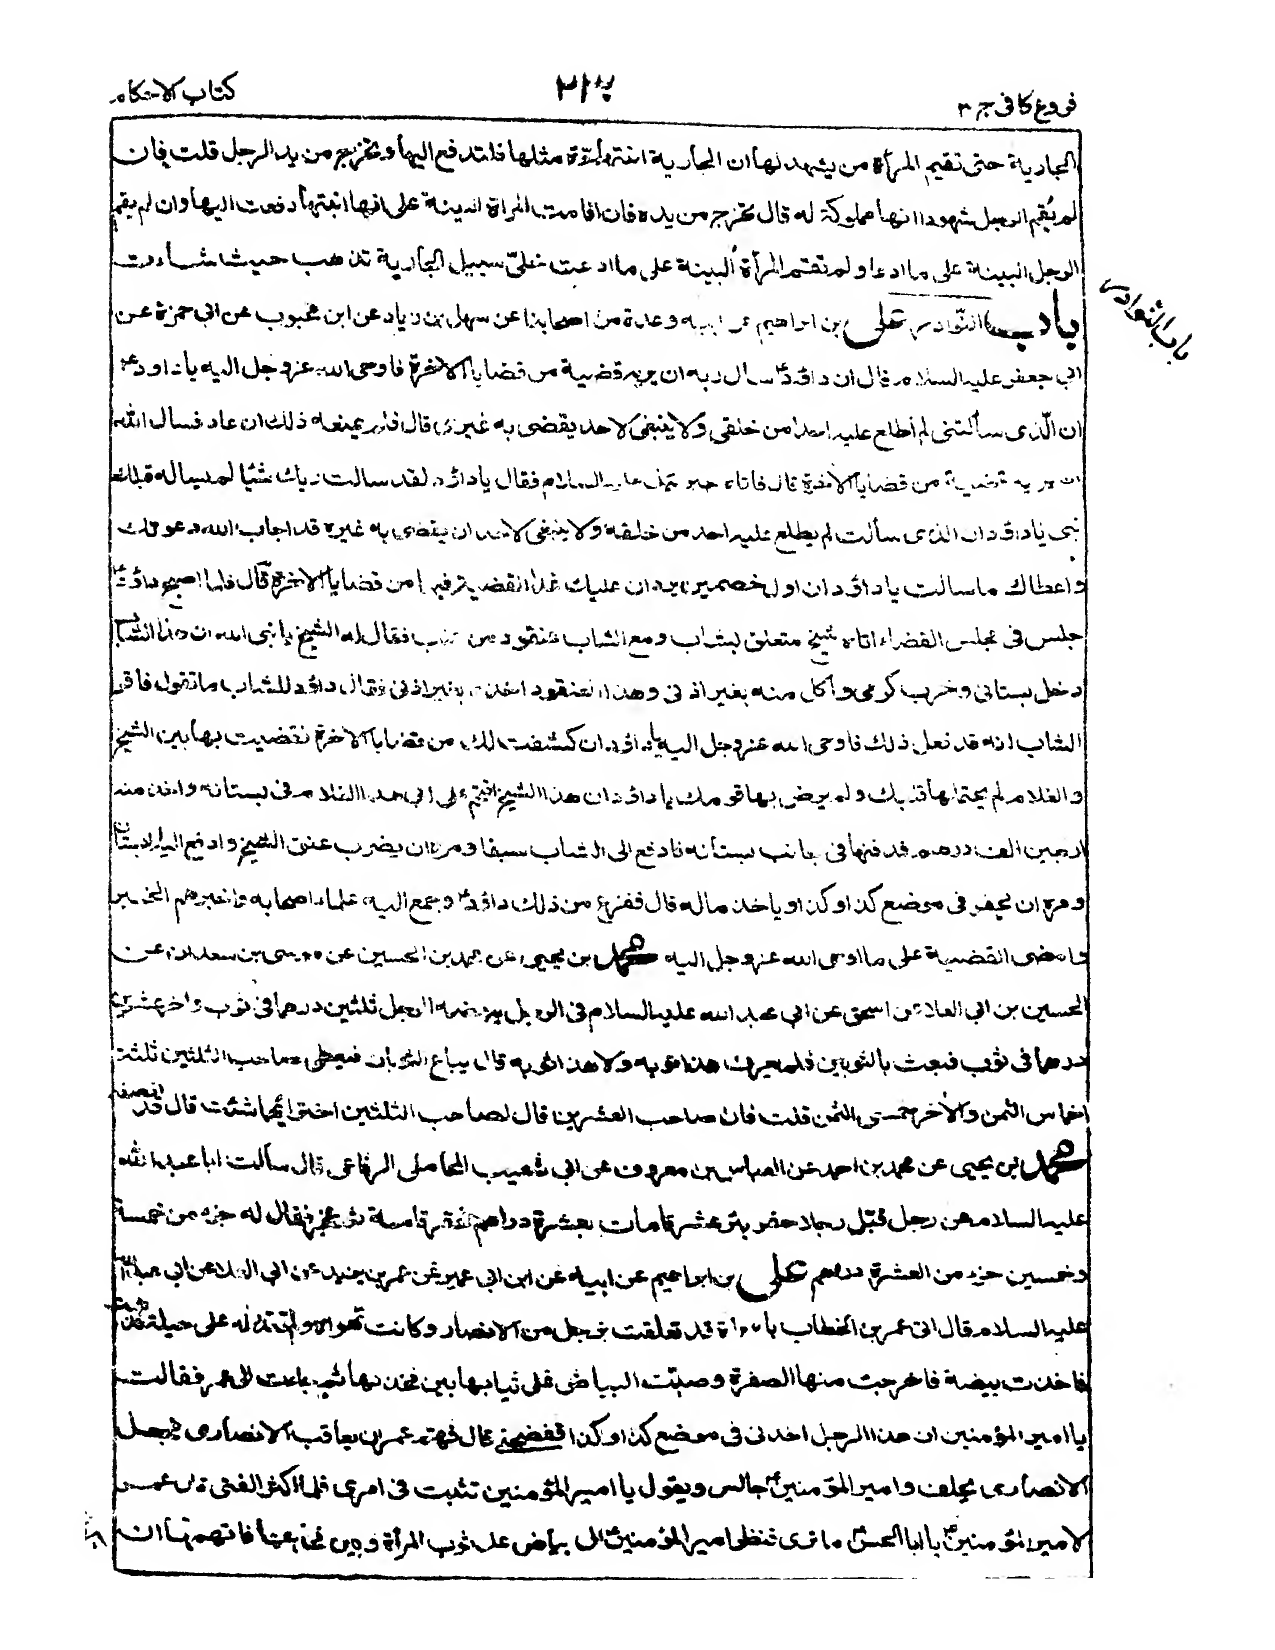 فروع كافى ج ٣
٢١٣
كتاب الاحكام
الجارية حتى تقيم المرأة من يشهد لها ان الجارية ابنتها حرة مثلها فلتدفع اليها وتخرج من يد الرجل قلت فان
لم يقم الرجل شهودا انها مملوكة له قال تخرج من يده فان اقامت المرأة البينة على انها ابنتها دفعت اليها وان لم يقم
الرجل البينة على ما ادعاه ولم تقم المرأة البينة على ما ادعت خلى سبيل الجارية تذهب حيث شاءت
باب النوادر
باب النوادر على بن ابراهيم عن ابيه وعدة من اصحابنا عن سهل بن زياد عن ابن محبوب عن ابى حمزة عن
ابى جعفر عليه السلام قال ان داود سأل ربه ان يريه قضية من قضايا الآخرة فاوحى الله عز وجل اليه يا داود
ان الذى سألتنى لم اطلع عليه احدا من خلقى ولا ينبغى لاحد يقضى به غيرى قال فلم يمنعه ذلك ان عاد فسال الله
ان يريه قضية من قضايا الآخرة قال فاتاه جبرئيل عليه السلام فقال يا داود لقد سالت ربك شيئا لم يساله قبلك
نبى يا داود ان الذى سألت لم يطلع عليه احد من خلقه ولا ينبغى لاحد ان يقضى به غيره قد اجاب الله دعوتك
واعطاك ما سالت يا داود ان اول خصمين يردان عليك غدا القضية فيهما من قضايا الآخرة قال فلما اصبح داود
جلس فى مجلس القضاء اتاه شيخ متعلق بشاب ومع الشاب عنقود من عنب فقال له الشيخ يا نبى الله ان هذا الشاب
دخل بستانى وخرب كرمى واكل منه بغير اذنى وهذا العنقود اخذه بغير اذنى فقال داود للشاب ما تقول فاقر
الشاب انه قد فعل ذلك فاوحى الله عز وجل اليه يا داود ان كشفت لك من قضايا الآخرة فقضيت بها بين الشيخ
والغلام لم يحتملها قلبك ولم يرض بها قومك يا داود ان هذا الشيخ اقتحم على ابى هذا الغلام فى بستانه واخذ منه
اربعين الف درهم فدفنها فى جانب بستانه فادفع الى الشاب سيفا ومره ان يضرب عنق الشيخ وادفع اليه البستان
ومره ان يحفر فى موضع كذا وكذا وياخذ ماله قال ففزع من ذلك داود وجمع اليه علماء اصحابه واخبرهم الخبر
وامضى القضية على ما اوحى الله عز وجل اليه محمد بن يحيى عن محمد بن الحسين عن موسى بن سعدان عن
الحسين بن ابى العلاء عن اسحق عن ابى عبد الله عليه السلام فى الرجل يبضعه الرجل ثلثين درهما فى ثوب واخر عشرين
درهما فى ثوب فبعث بالثوبين فلم يعرف هذا ثوبه ولا هذا ثوبه قال يباع الثوبان فيعطى صاحب الثلثين ثلثة
اخماس الثمن والآخر خمسى الثمن قلت فان صاحب العشرين قال لصاحب الثلثين اختر ايهما شئت قال قد انصفه
محمد بن يحيى عن محمد بن احمد عن العباس بن معروف عن ابى شعيب المحاملى الرفاعى قال سألت ابا عبد الله
عليه السلام عن رجل قبل رجلا حفر بئر عشر قامات بعشرة دراهم فحفر قامة ثم عجز فقال له جزء من خمسة
وخمسين جزء من العشرة دراهم على بن ابراهيم عن ابيه عن ابن ابى عمير عن عمر بن يزيد عن ابى العلا عن ابى عبد الله
عليه السلام قال اتى عمر بن الخطاب بامرأة قد تعلقت برجل من الانصار وكانت تهواه ولم تقدر له على حيلة فذهبت
فاخذت بيضة فاخرجت منها الصفرة وصبت البياض على ثيابها بين فخذيها ثم جاءت الى عمر فقالت
يا امير المؤمنين ان هذا الرجل اخذنى فى موضع كذا وكذا ففضحنى قال فهم عمر ان يعاقب الانصارى فجعل
الانصارى يحلف وامير المؤمنين جالس ويقول يا امير المؤمنين تثبت فى امرى فلما اكثر الفتى قال عمر
لامير المؤمنين يا ابا الحسن ما ترى فنظر امير المؤمنين الى بياض على ثوب المرأة وبين فخذيها فاتهمها ان